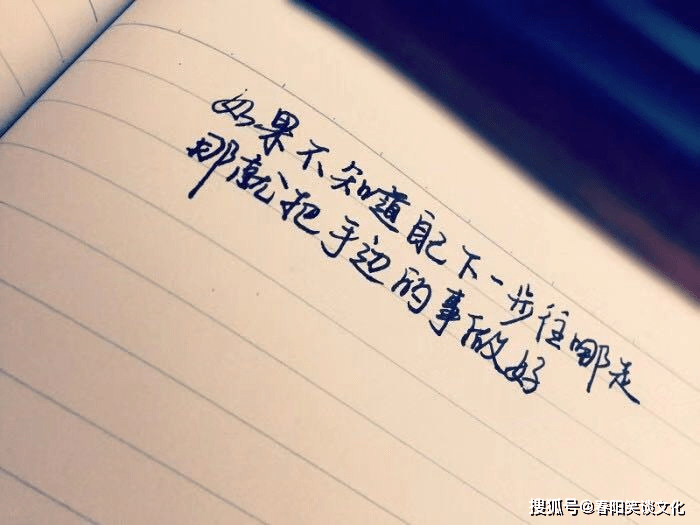 如果不知道自己下一步往哪走
那就把手边的事做好
搜狐号@春阳笑谈文化